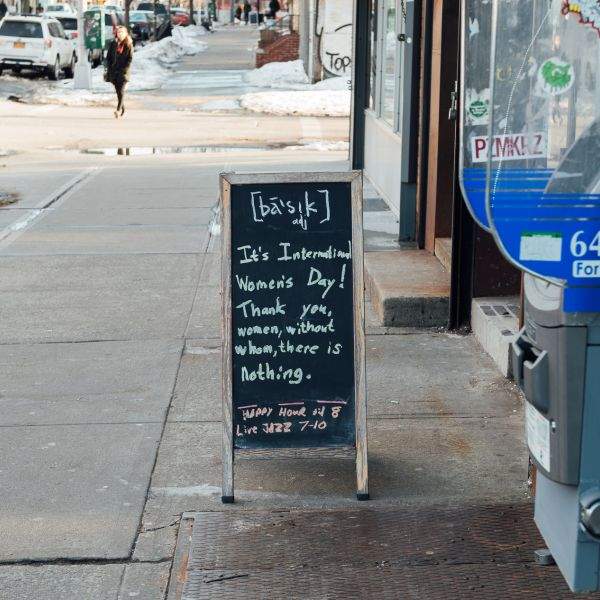 [bā'sik]
adj
It's International
Women's Day!
Thank you,
women, without
whom, there is
nothing.
HAPPY HOUR til 8
Live JAZZ 7-10
TOP
PZMKRZ
64
For